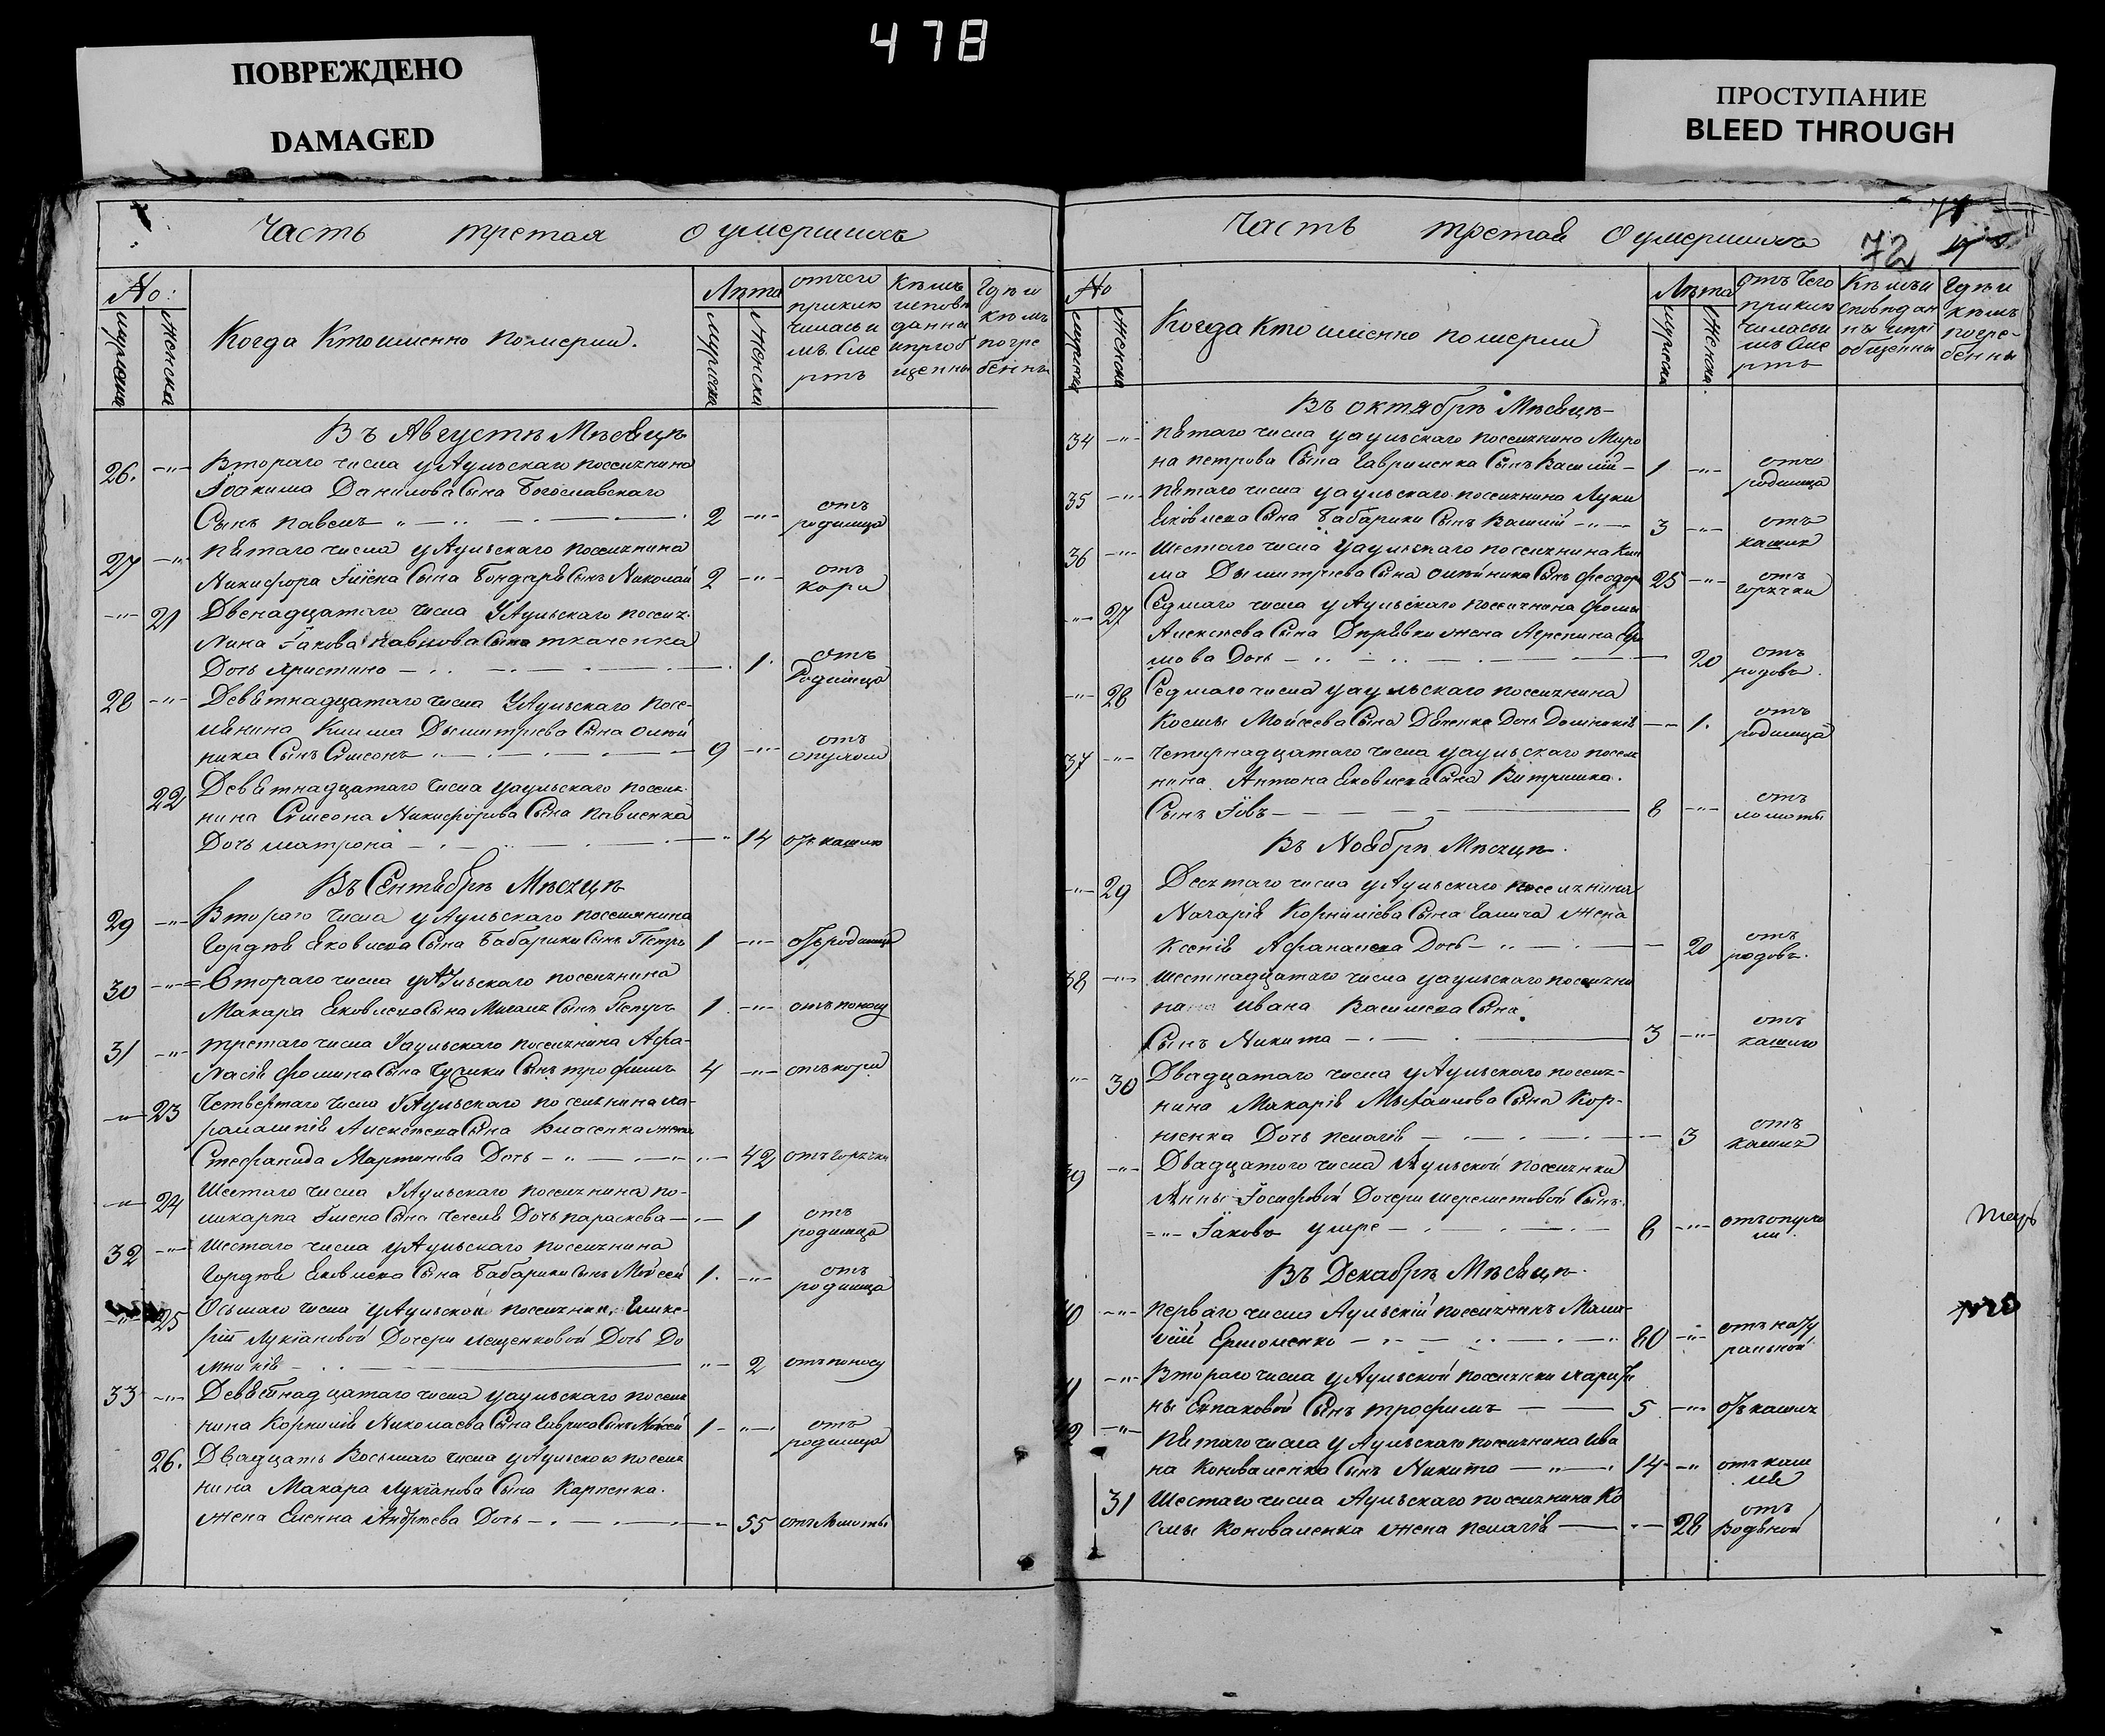 478
ПОВРЕЖДЕНО
DAMAGED
ПРОСТУПАНИЕ
BLEED THROUGH
Часть третая о умершихъ
No:
мужеска
женска
Когда кто именно померли.
Лѣта
мужеска
женска
отчего
приклю
чилась и
мъ сме
рть
Кѣмъ
исповѣ
данны
и приоб
щенны
Гдѣ и
кѣмъ
погре
бенны
Въ Августѣ Мѣсяцѣ
26. Втораго числа у Аульскаго поселянина
Іоакима Данилова Сына Богославскаго
Сынъ павелъ 2 отъ
родимца
27 пятаго числа у Аульскаго поселянина
Никифора Сына Бондаря Сынъ Николай 2 отъ
кори
21 Двенадцатаго числа У Аульскаго посел
нина Іакова павлова Сына ткаченка
Дочь христина 1. отъ
Родимца
28 Девятнадцатаго числа У Аульскаго посе-
лянина Клима Дымитріева Сына олей
ника Сынъ Симеонъ 9 отъ
опухоли
22 Девятнадцатаго числа уаульскаго посел
нина Симеона Никифорова Сына павленка
Дочь матрона 14 отъ кашлю
Въ Сентябрѣ Мѣсяцѣ
29 Втораго числа у Аульскаго поселянина
Гордѣя Яковлева Сына Бабарики Сынъ Петръ 1 отъ родимца
30 Втораго числа у Аульскаго поселянина
Макара Яковлева Сына Сынъ Петръ 1 отъ поносу
31 третаго числа Уаульскаго поселянина Афа-
насія фомина Сына Сынъ трофимъ 4 отъ кори
23 Четвертаго числа У Аульскаго поселянина ха-
рлампія Алексеева Сына Власенка жена
Стефанида Мартинова Дочь 42 отъ горячки
24 Шестаго числа У Аульскаго поселянина по-
ликарпа Сына Дочь параскева 1 отъ
родимца
32 Шестаго числа у Аульскаго поселянина
Гордѣя Яковлева Сына Бабарики Сынъ Мойсей 1. отъ
родимца
25 Осьмаго числа у Аульской поселянки Глике-
ріи Лукіановой Дочери лещенковой Дочь До
мникія 2 отъ поносу
33 Девятнадцатаго числа уаульскаго посел
нина Корнилія Николаева Сына Сынъ Мойсей 1 отъ
родимца
26. Двадцать Восьмаго числа у Аульского посел
нина Макара Лукіанова Сына Карпенка.
жена Еленна Андреева Дочь 55 отъ ломоты
Часть третая О умершихъ
72
No
мужеска
женска
Когда кто именно померли
Лѣта
мужеска
женска
отъ чего
приклю
чилась и
мъ сме
рть
Кѣмъ и
сповѣдан
ны и прі
общенны
Гдѣ и
кѣмъ
погре-
бенны
Въ октябрѣ Мѣсяцѣ
34 пятаго числа уаульскаго поселянина Миро
на петрова Сына Гавриленка Сынъ Василій 1 отъ
родимца
35 пятаго числа уаульскаго поселянина Луки
Яковлева Сына Бабарики Сынъ Василій 3 отъ
кашля
36 Шестаго числа уаульскаго поселянина Кли
ма Дымитріева Сына олейника Сынъ феодоръ 25 отъ
горячки
27 Седмаго числа у Аульскаго поселянина фомы
Алексѣева Сына жена Агрепина
мова Дочь 20 отъ
родовъ.
28 Седмаго числа уаульскаго поселянина
Космы Мойсеева Сына Дяченка Дочь Домникія 1. отъ
родимца
37 Четырнадцатаго числа уаульскаго посел
нина Антона Яковлева Сына
Сынъ Іовъ 8 отъ
ломоты
Въ Ноябрѣ Мѣсяцѣ.
29 Десятаго числа у Аульскаго поселянина
Корниліева Сына жена
Ксенія Афанасиева Дочь 20 отъ
родовъ.
38 Шестнадцатаго числа уаульскаго поселяни
на Ивана Василиева Сына
Сынъ Никита 3 отъ
кашлю
30 Двадцатаго числа у Аульскаго посел-
нина Макарія Михаилова Сына Кор-
ніенка Дочь пелагія 3 отъ
кашля
39 Двадцатого числа Аульской поселянки
Анны Іосифовой Дочери шереметовой Сынъ
Іаковъ умре 8 отъ опухо
ли
Въ Декабрѣ Мѣсяцѣ.
40 перваго числа Аульскій поселянинъ
Ермоленко 80 отъ нату
ральной
41 Втораго числа у Аульской поселянки
ны Сынъ трофимъ 5 отъ кашля
42 пятаго числа у Аульскаго поселянина Ива
на Коноваленка Сынъ Никита 14 отъ каш
ля
31 Шестаго числа Аульскаго поселянина Ко
смы Коноваленка жена пелагія 28 отъ
водяной